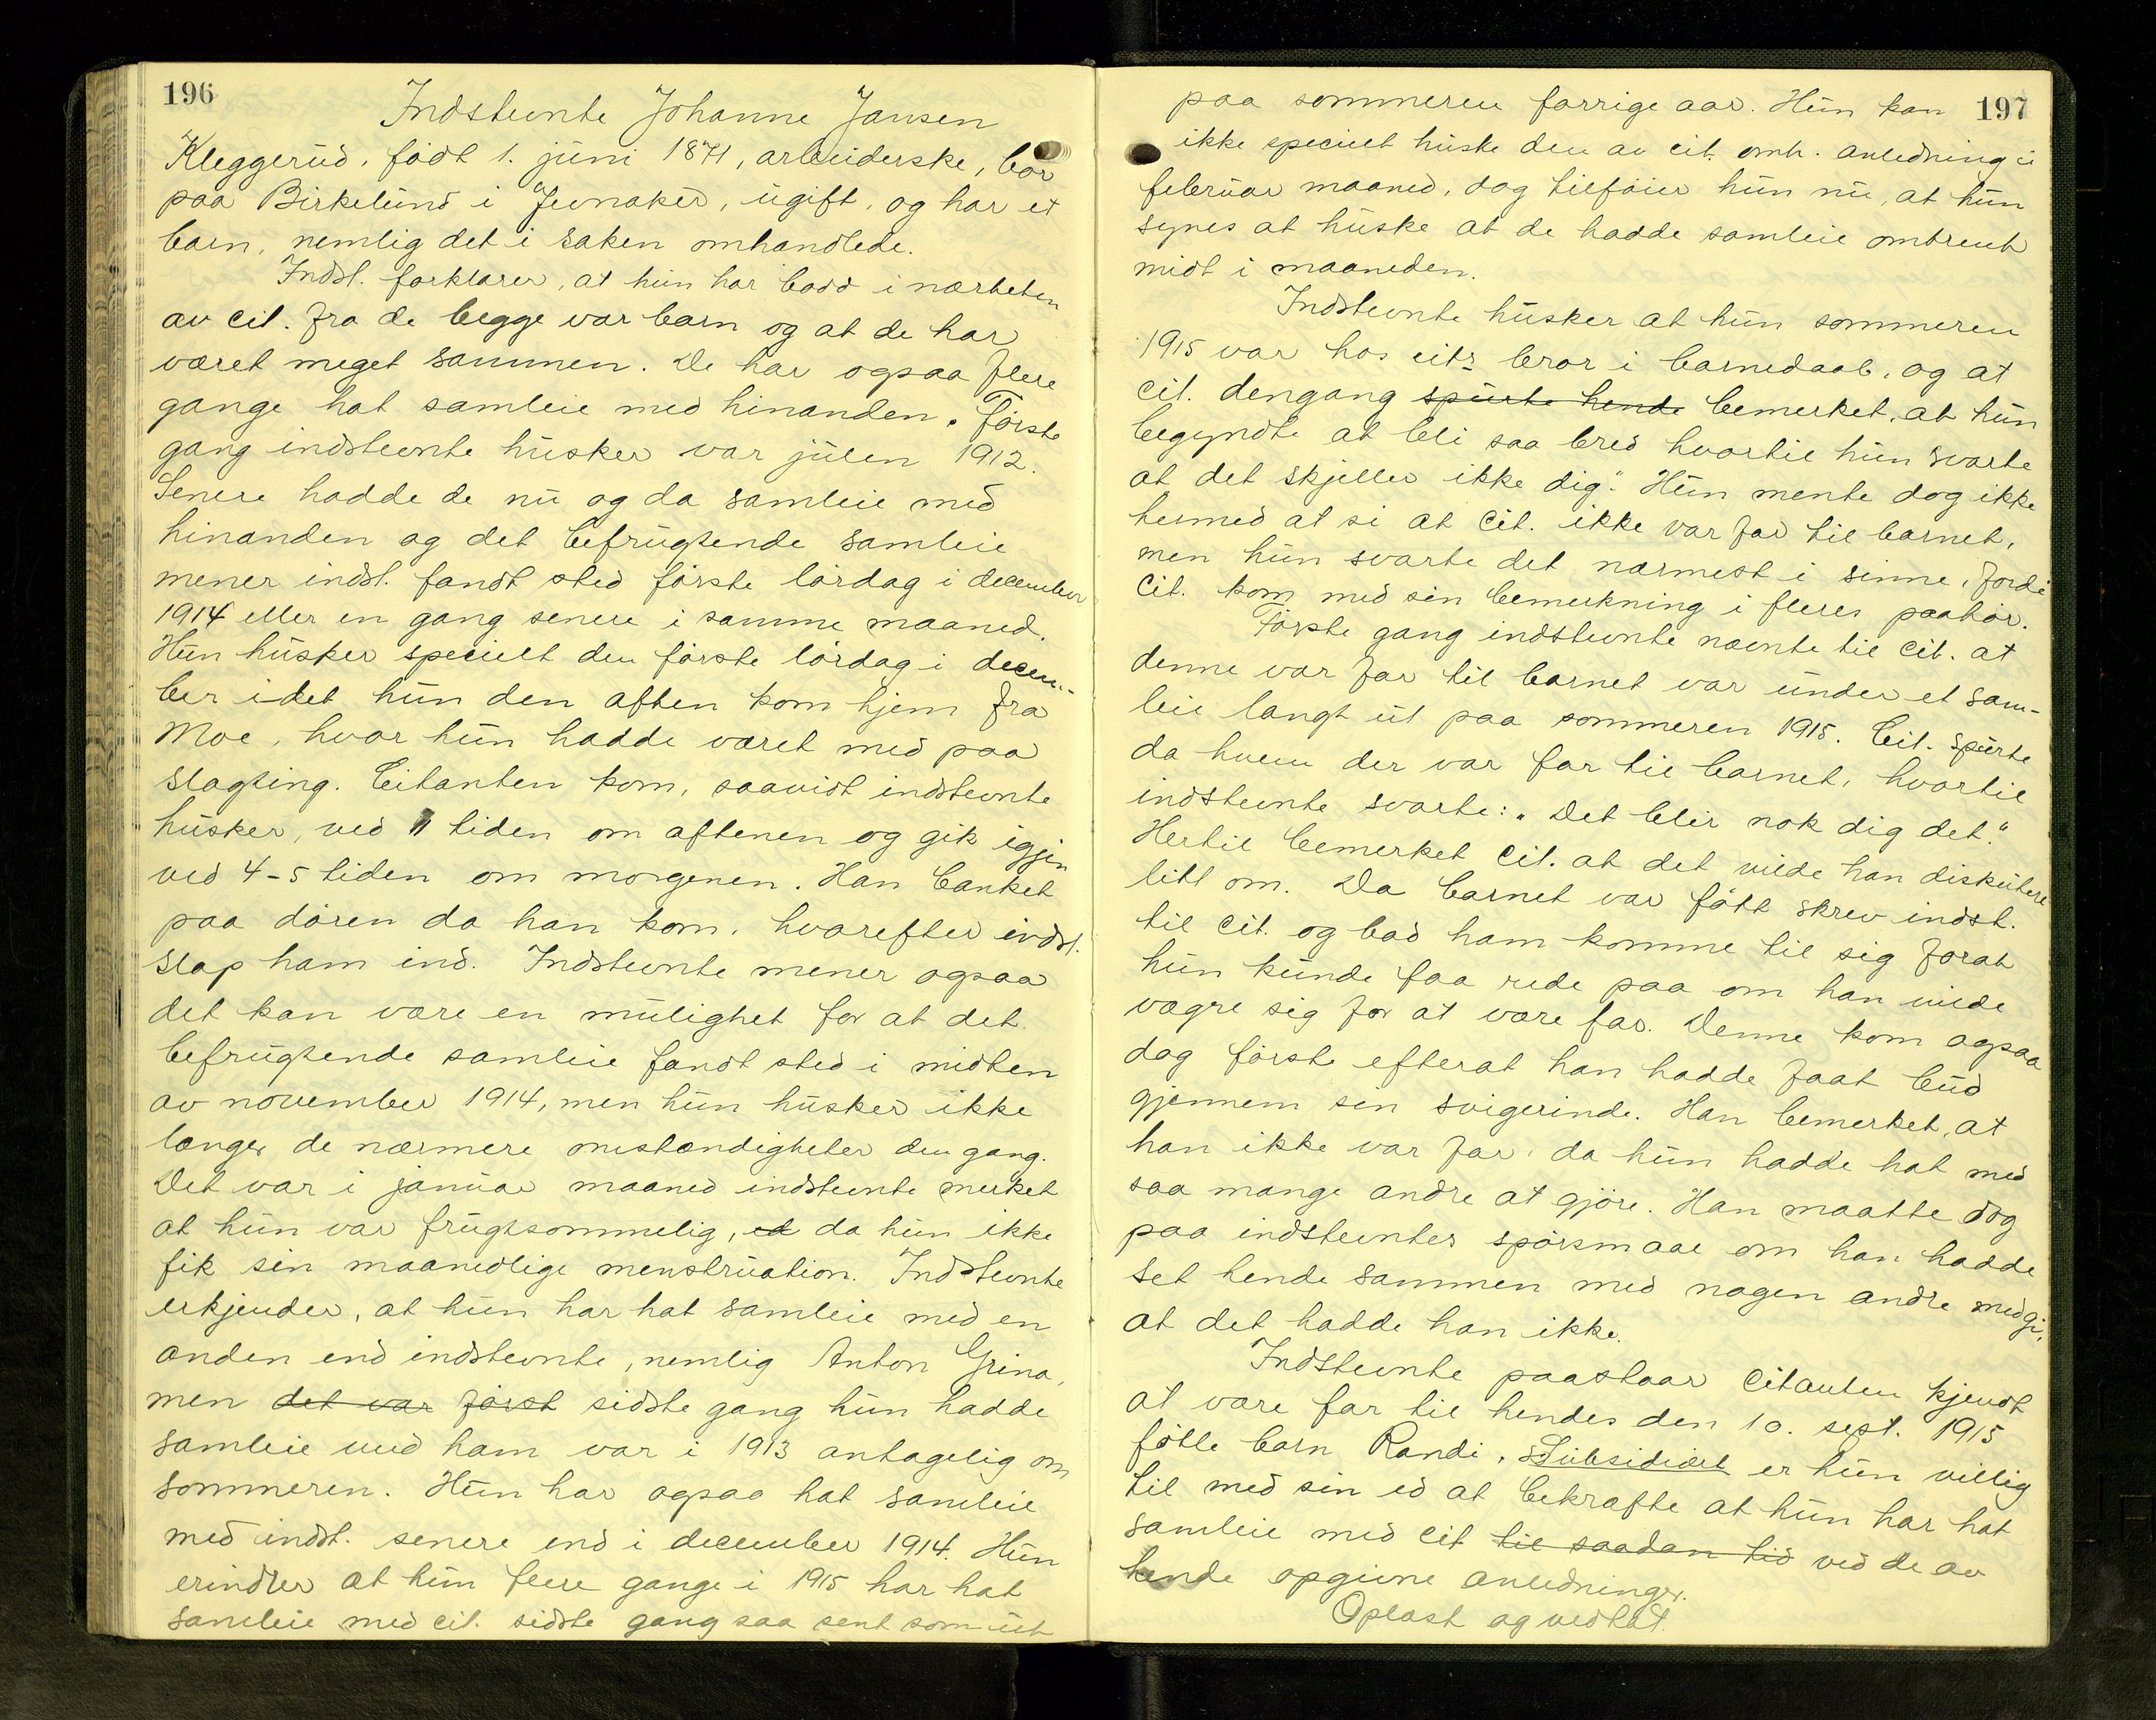 196
Indstevnte Johanne Jansen
Kleggerud, født 1. juni 1871, arbeiderske, bor
paa Birkelund i Jevnaker, ugift, og har et
barn, nemlig det i saken omhandlede.
Indst. forklarer, at hun har bodd i nærheten
av cit. fra de begge var barn og at de har
været meget sammen. De har ogsaa flere
gange hat samleie med hinanden. Første
gang indstevnte husker var julen 1912.
Senere hadde de nu og da samleie med
hinanden og det befrugtende samleie
mener indst. fandt sted første lördag i december
1914 eller en gang senere i samme maaned.
Hun husker specielt den første lördag i decem-
ber idet hun den aften kom hjem fra
Moe, hvor hun hadde været med paa
slagting. Citanten kom, saavidt indstevnte
husker, ved 11 tiden om aftenen og gik igjen
ved 4-5 tiden om morgenen. Han banket
paa dören da han kom, hvorefter indst.
slap ham ind. Indstevnte mener ogsaa
det kan være en mulighet for at det
befrugtende samleie fandt sted i midten
av november 1914, men hun husker ikke
længer de nærmere omstændigheter den gang.
Det var i januar maaned indstevnte merket
at hun var frugtsommelig, ed da hun ikke
fik sin maanedlige menstruation. Indstevnte
erkjender, at hun har hat samleie med en
anden end indstevnte, nemlig Anton Grina,
men det var först sidste gang hun hadde
samleie med ham var i 1913 antagelig om
sommeren. Hun har ogsaa hat samleie
med indst. senere end i december 1914. Hun
erindrer at hun flere gange i 1915 har hat
samleie med cit. sidste gang saa sent som ut
197
paa sommeren forrige aar. Hun kan
ikke specielt huske den av cit. omh. anledning i
februar maaned, dog tilföier hun nu, at hun
synes at huske at de hadde samleie omtrent
midt i maaneden.
Indstevnte husker at hun sommeren
1915 var hos cits bror i barnedaab, og at
cit. dengang spurte hende bemerket, at hun
begyndte at bli saa bred hvortil hun svarte
at det skjeller ikke dig". Hun mente dog ikke
hermed at si at cit. ikke var far til barnet,
men hun svarte det nærmest i sinne, fordi
cit. kom med sin bemerkning i fleres paahør.
Første gang indstevnte nævnte til cit. at
denne var far til barnet var under et sam-
leie langt ut paa sommeren 1915. Cit. spurte
da hvem der var far til barnet, hvortil
indstevnte svarte: „Det blir nok dig det".
Hertil bemerket cit. at det vilde han diskutere
litt om. Da barnet var født skrev indst.
til cit. og bad ham komme til sig forat
hun kunde faa rede paa om han vilde
vægre sig for at være far. Denne kom ogsaa
dog første efterat han hadde faat bud
gjennem sin svigerinde. Han bemerket, at
han ikke var far, da hun hadde hat med
saa mange andre at gjöre. Han maatte dog
paa indstevntes spörsmaal om han hadde
set hende sammen med nogen andre medgi,
at det hadde han ikke.
Indstevnte paastaar citanten kjendt
at være far til hendes den 10. sept. 1915
fötte barn Randi. Subsidiært er hun villig
til med sin ed at bekræfte at hun har hat
samleie med cit til saadan tid ved de av
hende opgivne anledninger.
Oplæst og vedtat.